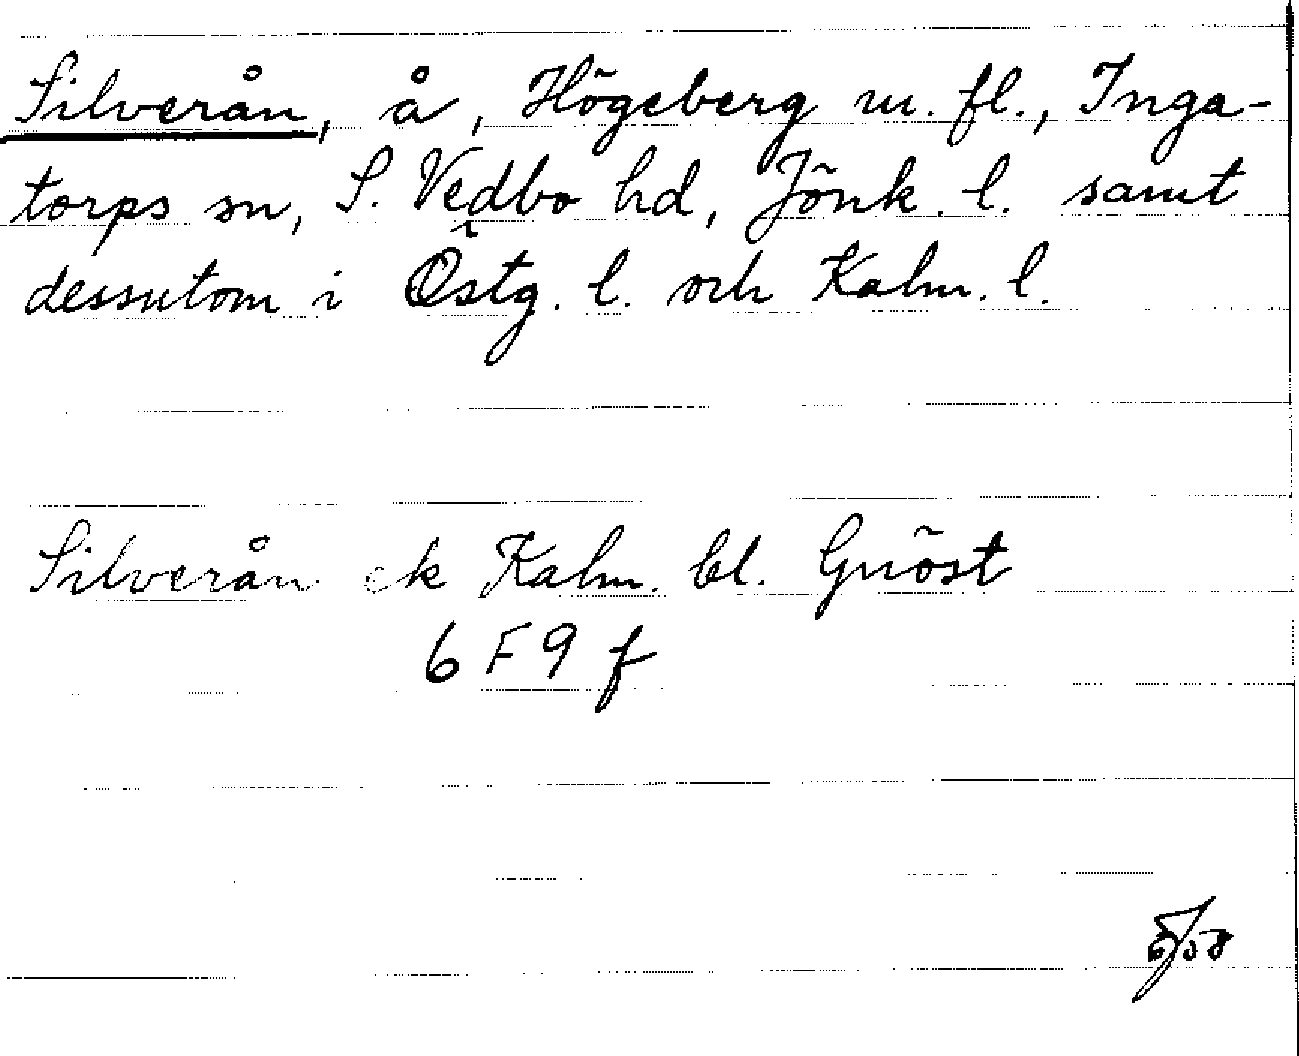 Silverån, å, Högeberg m. fl., Inga-
torps sn, S. Vedbo hd, Jönk. l. samt
dessutom i Östg. l. och Kalm. l.
Silverån ek Kalm. bl. Gnöst
6 F 9 f